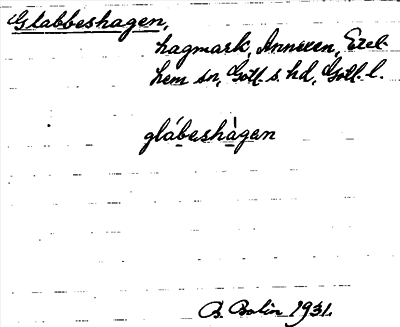 Glabbeshagen,
hagmark, Annexen, Etel-
hem sn, Gotl. s. hd, Gotl. l.
glábeshàgen
B. Bolin 1931.